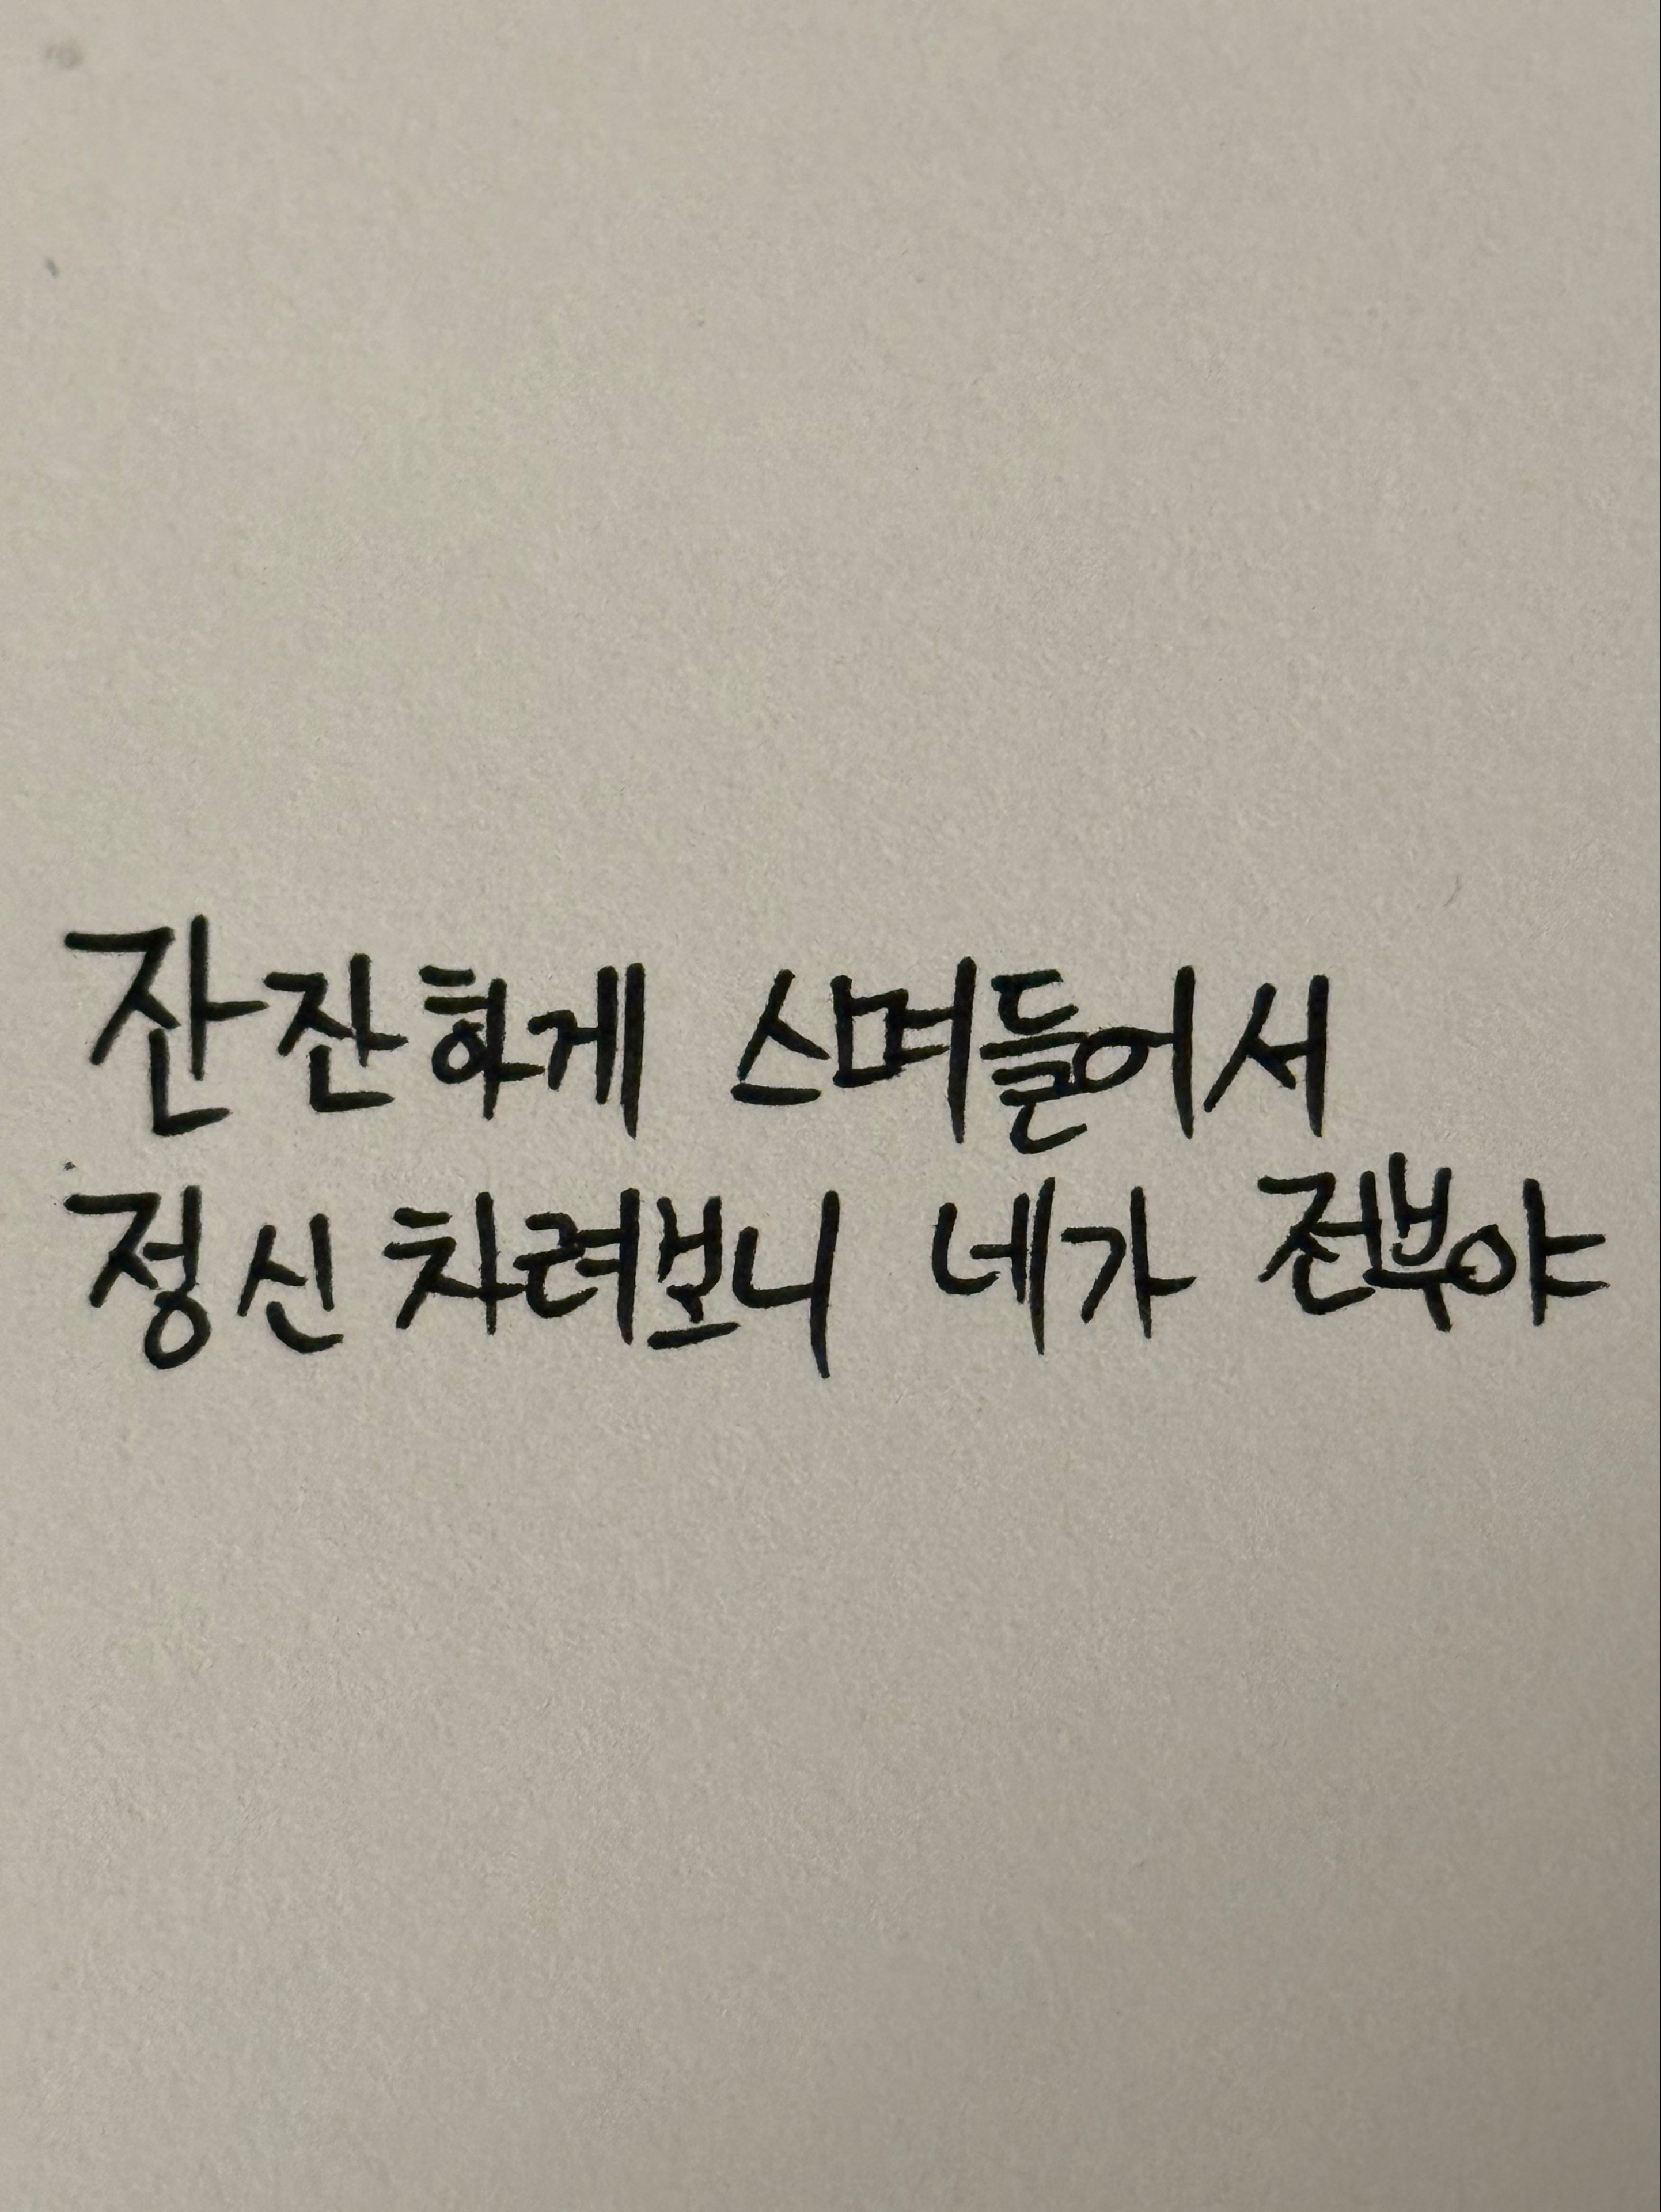 잔잔하게 스며들어서
정신 차려보니 네가 전부야